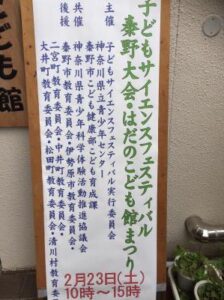 子どもサイエンスフェスティバル
秦野大会・はだのこども館まつり
主催
子どもサイエンスフェスティバル実行委員会
神奈川県立青少年センター
秦野市こども健康部こども育成課
共催
神奈川県青少年科学体験活動推進協議会
後援
秦野市教育委員会・伊勢原市教育委員会
二宮町教育委員会・中井町教育委員会
大井町教育委員会・松田町教育委員会・清川村教育委
2月23日(土)
10時～15時
こども館